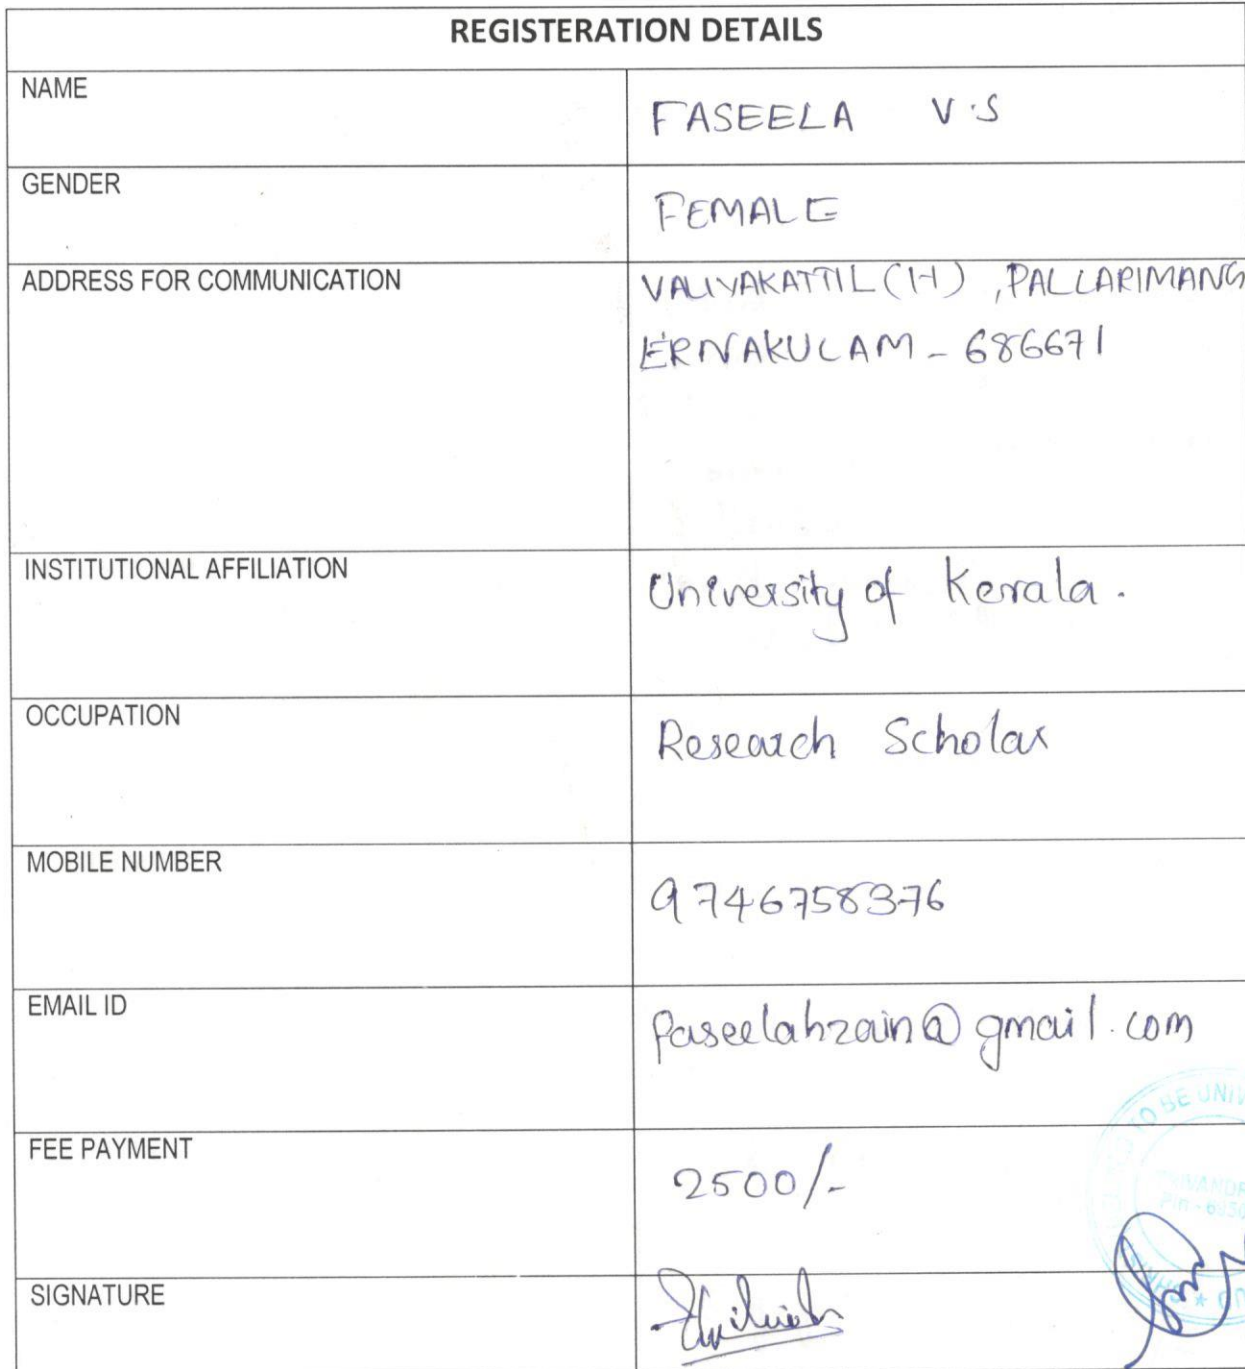 REGISTERATION DETAILS
NAME
FASEELA V.S
GENDER
FEMALE
ADDRESS FOR COMMUNICATION
VALIYAKATTIL (H), PALLARIMANG
ERNAKULAM - 686671
INSTITUTIONAL AFFILIATION
University of Kerala.
OCCUPATION
Research Scholar
MOBILE NUMBER
9746758376
EMAIL ID
faseelahzain@gmail.com
FEE PAYMENT
2500/-
TO BE UNIV
SIGNATURE